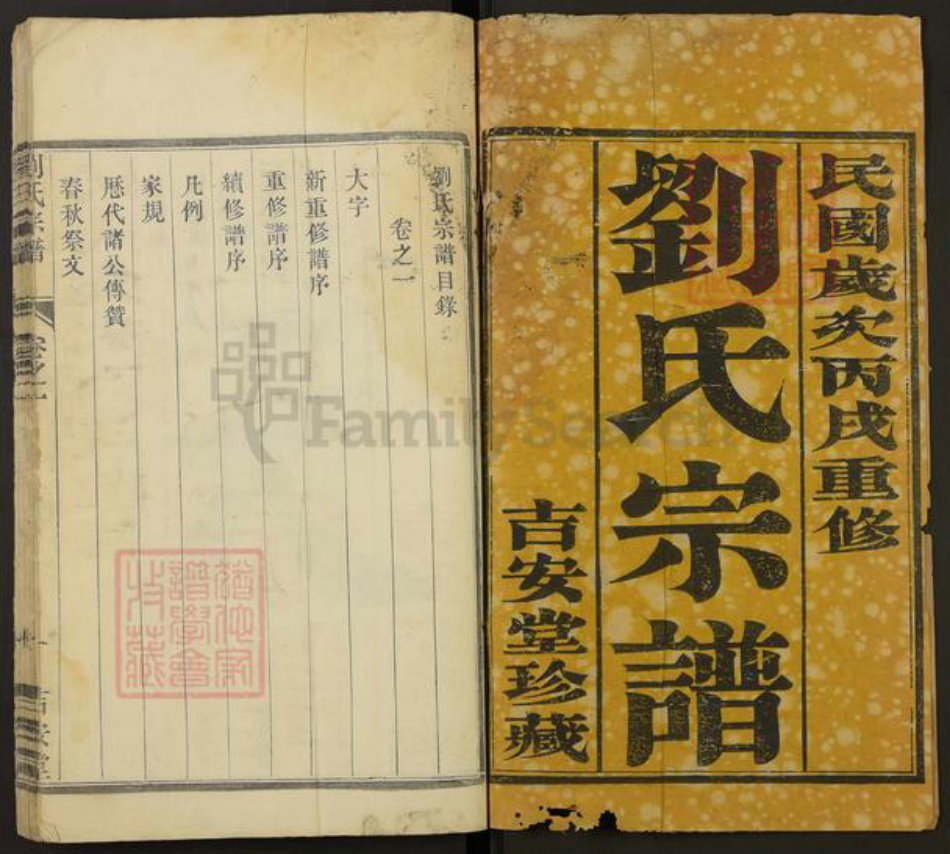 民國歲次丙戌重修
劉氏宗譜
吉安堂珍藏
劉氏宗譜目錄
卷之一
大字
新重修譜序
重修譜序
續修譜序
凡例
家規
歷代諸公傳贊
春秋祭文
劉氏宗譜
卷之一
一
吉安堂
FamilySearch